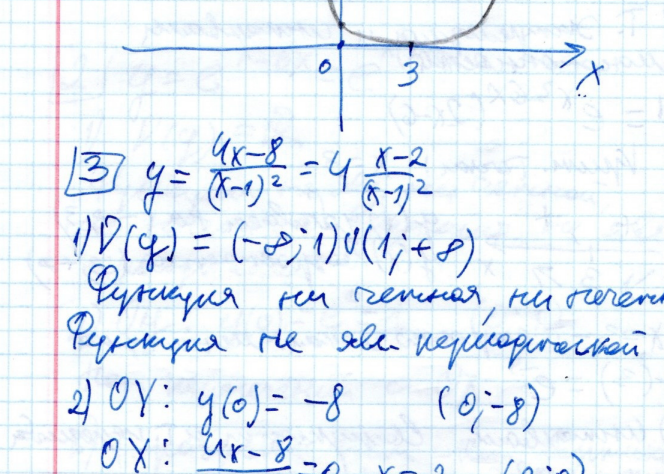 0 3 x
3 y = (4x-8)/(x-1)² = 4 (x-2)/(x-1)²
1) D(y) = (-∞; 1)∪(1; +∞)
Функция ни четная, ни нечетн
Функция не явл периодической
2) OY: y(0) = -8 (0; -8)
OX: 4x-8